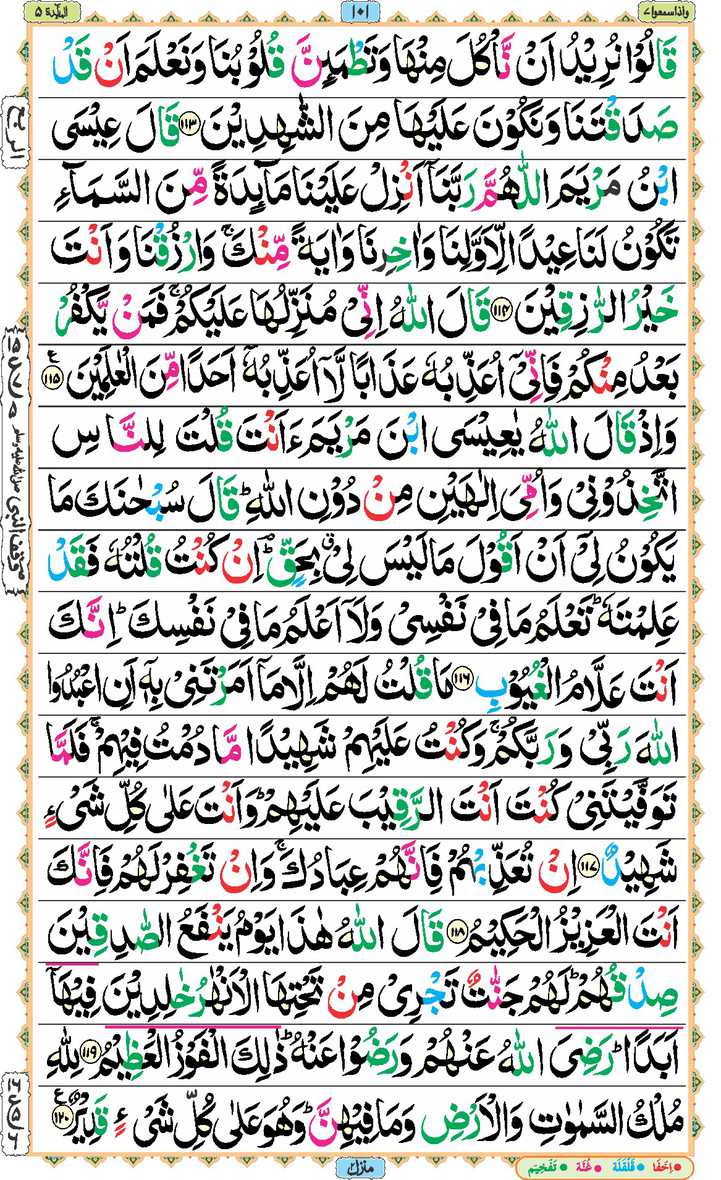 واذاسمعوا ٧
١٠١
المآئدة ٥
قَالُوْا نُرِيْدُ اَنْ نَّاْكُلَ مِنْهَا وَتَطْمَىِٕنَّ قُلُوْبُنَا وَنَعْلَمَ اَنْ قَدْ
صَدَقْتَنَا وَنَكُوْنَ عَلَيْهَا مِنَ الشّٰهِدِيْنَ ۝۱۱۳ قَالَ عِيْسَى
ابْنُ مَرْيَمَ اللّٰهُمَّ رَبَّنَاۤ اَنْزِلْ عَلَيْنَا مَآىِٕدَةً مِّنَ السَّمَآءِ
تَكُوْنُ لَنَا عِيْدًا لِّاَوَّلِنَا وَاٰخِرِنَا وَاٰيَةً مِّنْكَ ۚ وَارْزُقْنَا وَاَنْتَ
خَيْرُ الرّٰزِقِيْنَ ۝۱۱۴ قَالَ اللّٰهُ اِنِّىْ مُنَزِّلُهَا عَلَيْكُمْ ۚ فَمَنْ يَّكْفُرْ
بَعْدُ مِنْكُمْ فَاِنِّىْۤ اُعَذِّبُهٗ عَذَابًا لَّاۤ اُعَذِّبُهٗۤ اَحَدًا مِّنَ الْعٰلَمِيْنَ ۝۱۱۵ ع
وَاِذْ قَالَ اللّٰهُ يٰعِيْسَى ابْنَ مَرْيَمَ ءَاَنْتَ قُلْتَ لِلنَّاسِ
اتَّخِذُوْنِىْ وَاُمِّىَ اِلٰهَيْنِ مِنْ دُوْنِ اللّٰهِ ؕ قَالَ سُبْحٰنَكَ مَا
يَكُوْنُ لِىْۤ اَنْ اَقُوْلَ مَا لَيْسَ لِىْ ۗ بِحَقٍّ ؕ اِنْ كُنْتُ قُلْتُهٗ فَقَدْ
عَلِمْتَهٗ ؕ تَعْلَمُ مَا فِىْ نَفْسِىْ وَلَاۤ اَعْلَمُ مَا فِىْ نَفْسِكَ ؕ اِنَّكَ
اَنْتَ عَلَّامُ الْغُيُوْبِ ۝۱۱۶ مَا قُلْتُ لَهُمْ اِلَّا مَاۤ اَمَرْتَنِىْ بِهٖۤ اَنِ اعْبُدُوا
اللّٰهَ رَبِّىْ وَرَبَّكُمْ ۚ وَكُنْتُ عَلَيْهِمْ شَهِيْدًا مَّا دُمْتُ فِيْهِمْ ۚ فَلَمَّا
تَوَفَّيْتَنِىْ كُنْتَ اَنْتَ الرَّقِيْبَ عَلَيْهِمْ ؕ وَاَنْتَ عَلٰى كُلِّ شَىْءٍ
شَهِيْدٌ ۝۱۱۷ اِنْ تُعَذِّبْهُمْ فَاِنَّهُمْ عِبَادُكَ ۚ وَاِنْ تَغْفِرْ لَهُمْ فَاِنَّكَ
اَنْتَ الْعَزِيْزُ الْحَكِيْمُ ۝۱۱۸ قَالَ اللّٰهُ هٰذَا يَوْمُ يَنْفَعُ الصّٰدِقِيْنَ
صِدْقُهُمْ ؕ لَهُمْ جَنّٰتٌ تَجْرِىْ مِنْ تَحْتِهَا الْاَنْهٰرُ خٰلِدِيْنَ فِيْهَاۤ
اَبَدًا ؕ رَضِىَ اللّٰهُ عَنْهُمْ وَرَضُوْا عَنْهُ ؕ ذٰلِكَ الْفَوْزُ الْعَظِيْمُ ۝۱۱۹ لِلّٰهِ
مُلْكُ السَّمٰوٰتِ وَالْاَرْضِ وَمَا فِيْهِنَّ ؕ وَهُوَ عَلٰى كُلِّ شَىْءٍ قَدِيْرٌ ۝۱۲۰ ع
منزل ٢
اِخْفَا • قَلْقَلَة • غُنَّة • تَفْخِيْم •